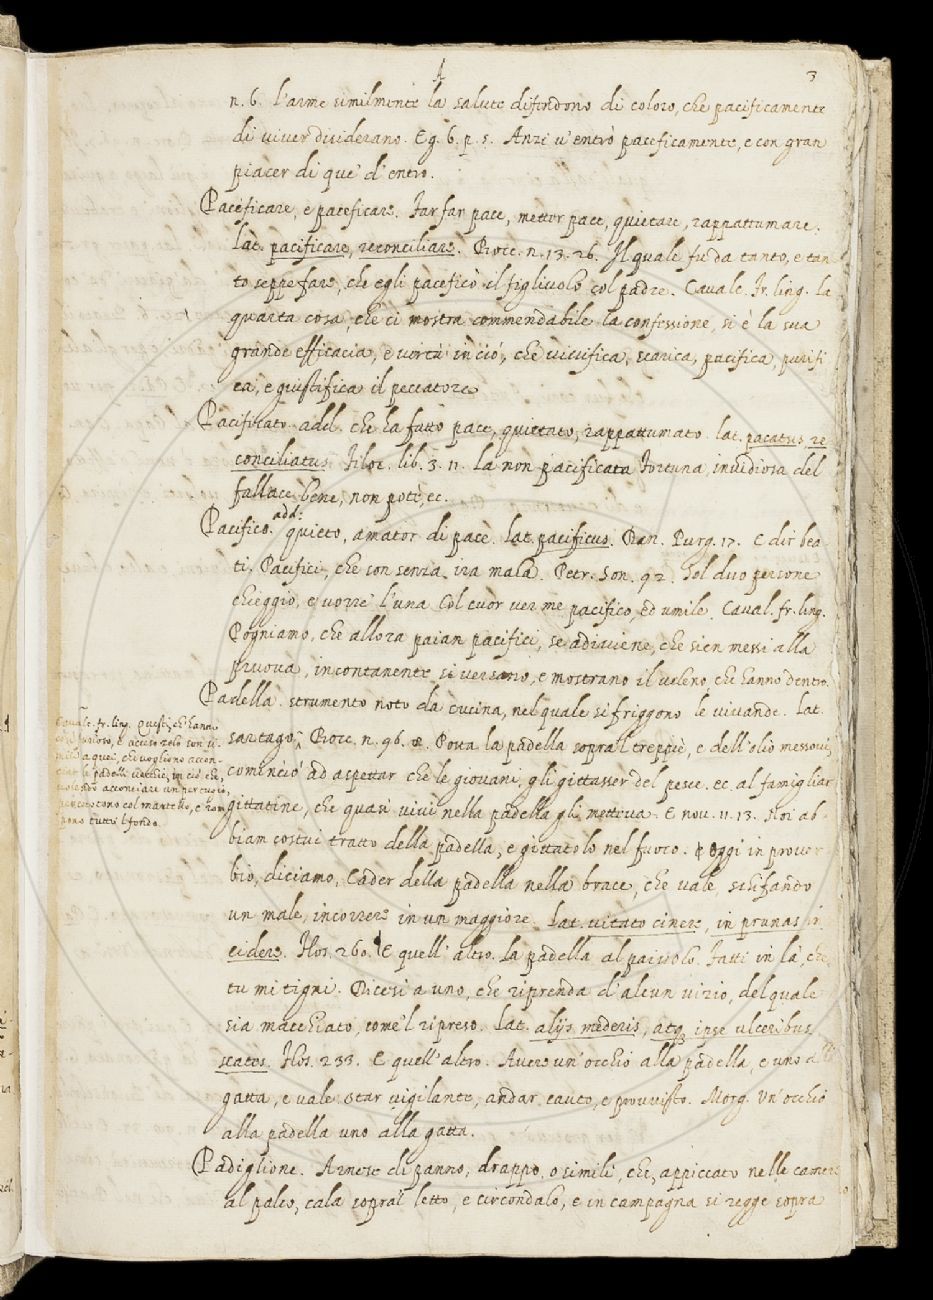 A
3
n. 6. L'arme similmente la salute difendono di coloro, che pacificamente
di viver disiderano. E g. 6. p. 5. Anzi v'entrò paceficamente, e con gran
piacer di que' d'entro.
Paceficare, e pacificare. Far far pace, metter pace, quietare, rappattumare.
lat. pacificare, reconciliare. Bocc. n. 13. 26. Il quale fu da tanto, e tan
to seppe fare, che egli paceficò il figliuolo col padre. Cavalc. fr. ling. la
quarta cosa, che ci mostra commendabile la confessione, si è la sua
grande efficacia, e vertù in ciò, che vivifica, scarica, pacifica, purifi
ca, e giustifica il peccatore
Pacificato. add. che ha fatto pace, quietato, rappattumato. lat. pacatus, re
conciliatus. Filoc. lib. 3. n. La non pacificata Fortuna invidiosa del
fallace bene, non potè, ec.
Pacifico. add: quieto, amator di pace. Lat. pacificus. Dan. Purg. 17. E dir bea
ti Pacifici, che son senza ira mala. Petr. Son. 92. Sol duo persone
cheggio, e vorrè l'una Col cuor ver me pacifico, ed umile. Caval. fr. ling.
Pogniamo, che allora paian pacifici, se adiviene, che sien messi alla
pruova, incontanente si versano, e mostrano il veleno, che hanno dentro.
Padella. strumento noto da cucina, nel quale si friggono le vivande. Lat.
sartago. Bocc. n. 96. 8. Posta la padella sopra'l treppiè, e dell'olio messovi,
cominciò ad aspettar che le giovani gli gittasser del pesce. ec. al famigliar
gittatine, che quasi vivi nella padella gli metteva. E nov. 11. 13. Noi ab-
biam costui tratto della padella, e gittatolo nel fuoco. Oggi in prover
bio, diciamo, Cader della padella nella brace, che vale, schifando
un male, incorrere in un maggiore. Lat. vitato cinere, in prunas in
cidere. Flos. 260. E quell'altro. La padella al paiuolo. Fatti in là, che
tu mi tigni. Dicesi a uno, che riprenda d'alcun vizio, del quale
sia macchiato, come'l ripreso. Lat. alijs mederis, atq. ipse ulceribus
scates. Flos. 233. E quell'altro. Avere un'occhio alla padella, e uno alla
gatta, e vale star vigilante, andar cauto, e provvisto. Morg. Un'occhio
alla padella uno alla gatta.
Padiglione. Arnese di panno, drappo, o simili, che, appiccato nelle camere
al palco, cala sopra'l letto, e circondalo, e in campagna si regge sopra
Cavalc. fr. ling. Questi, ch'hanno
furioso, e acceso zelo son si
mili a quei, che vogliono accon
ciar le padelle vecchie, in ciò che,
volendo acconciare un pertugio,
percuotono col martello, e rom
pono tutto'l fondo.